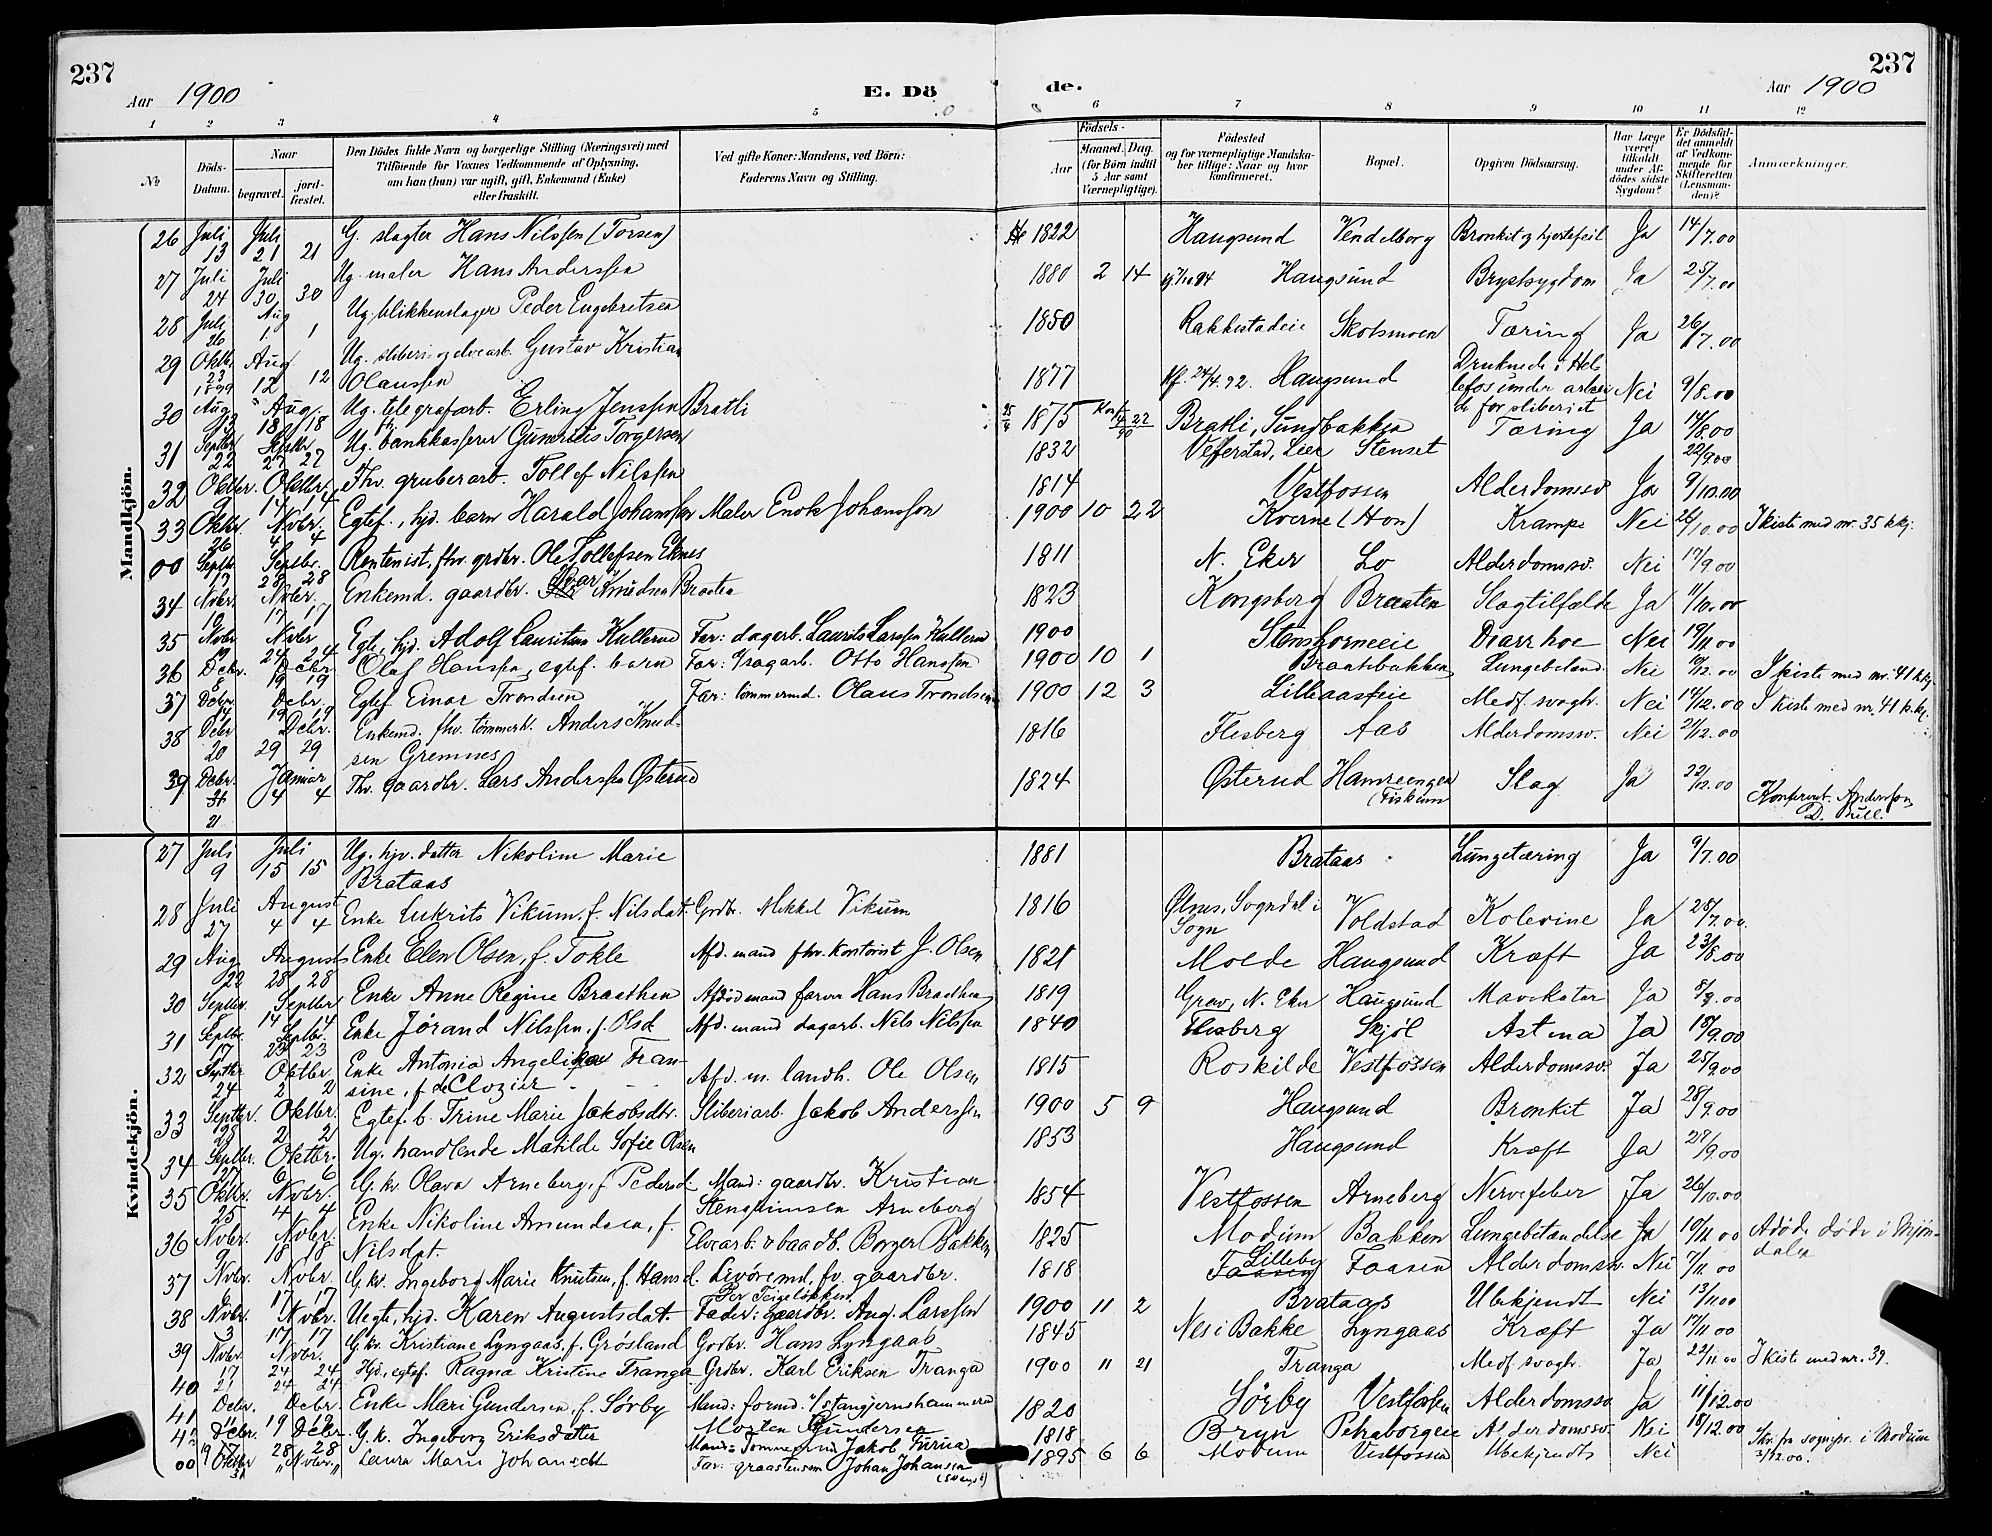 237
Aar 1900
E. Dö
de.
Aar 1900
237
1 2 3 4 5 6 7 8 9 10 11 12
№
Döds-Datum.
Naar
begravet.
jord-fæstet.
Den Dödes fulde Navn og borgerlige Stilling (Næringsvei) med
Tilföiende for Voxnes Vedkommende af Oplysning,
om han (hun) var ugift, gift, Enkemand (Enke)
eller fraskilt.
Ved gifte Koner: Mandens, ved Börn:
Faderens Navn og Stilling.
Födsels-
Aar
Maaned. Dag.
(for Börn indtil
5 Aar samt
Værnepligtige).
Födested
og for værnepligtige Mandska-
ber tillige: Naar og hvor
konfirmeret.
Bopæl.
Opgiven Dödsaarsag.
Har Læge
været
tilkaldt
under Af-
dödes sidste
Sygdom?
Er Dödsfal-
det anmeldt
af Vedkom-
mende for
Skifteretten
(Lensman-
den)?
Anmærkninger.
Mandkjön.
26 Juli 13 Juli 21 21 G. slagter Hans Nilssen (Torsen) 1822 Haugsund Vendelborg Bronkit og hjertefeil Ja 14/7.00
27 Juli 24 Juli 30 30 Ug. maler Hans Anderssen 1880 2 14 Haugsund Brystsygdom Ja 25/7.00
28 Juli 26 Aug 1 1 Ug. blikkenslager Peder Engebretsen 1850 Rakkestadeie Skotsmoen Tæring Ja 26/7.00
29 Oktbr. 23 1899 Aug 12 12 Ug. sliberi- og elvearb. Gustav Kristian
Olaussen 1877 Kf. 24/4.92. Haugsund Druknede i Hel-
lefos under arbei-
de for sliberiet Nei 9/8.00
30 Aug. 13 Aug. 18 18 Ug. telegrafarb. Erling Jenssen Bratli 1875 Bratli, Sundbakken Tæring Ja 14/8.00
31 Septbr 22 Septbr 27 27 Ug. bankkasserer Gunerius Torgersen 1832 Lier Stenset 22/9.00
32 Oktbr. 9 Oktbr. 14 14 Fhv. gruberarb. Tollef Nilssen 1814 Vestfossen Alderdomssv. Ja 9/10.00
33 Oktbr. 26 Nvbr. 4 4 Egtef., hjd. barn Harald Johanssen Maler Enok Johanssen 1900 10 22 Kverne (Hon) Krampe Nei 26/10.00 I kiste med nr. 35 k.kj.
00 Septbr. 17 Septbr. 28 28 Rentenist, fhv. grdbr. Ole Tollefsen Eknes 1811 N. Eker Lo Alderdomssv. Nei 17/9.00
34 Nvbr. 10 Nvbr. 17 17 Enkemd. gaardbr. Ivar Knudsen Braaten 1823 Kongsberg Braaten Slagtilfælde Ja 11/10.00
35 Nvbr. 19 Nvbr 24 24 Egte, hjd. Adolf Lauritsen Kullerud Far: dagarb. Laurits Larssen Kullerud 1900 Stenshorneeie Diarrhoe Nei 19/11.00
36 Dcbr. 8 Dcbr. 19 19 Olaf Hanssen, egtef. barn Far: dagarb. Otto Hanssen 1900 10 1 Braatebakken Lungebetænd. Nei 10/12.00 I kiste med nr. 41 k.kj.
37 Dcbr. 14 Dcbr. 19 19 Egtef Einar Trondsen Far: tömmermd. Olaus Trondsen 1900 12 3 Lilleaaseie Medf. svagh. Nei 14/12.00 I kiste med nr. 41 k.kj.
38 Dcbr 20 Dcbr. 29 29 Enkemd. fhv. tömmerh. Anders Knud-
sen Gremnes 1816 Flesberg Aas Alderdomssv. Nei 21/12.00
39 Dcbr. 21 Januar 4 4 Fhv. gaardbr. Lars Anderssen Østerud 1824 Østerud Hamreengen
(Fiskum Slag Ja 22/12.00 Konferert. Anderssen
Kvindekjön.
27 Juli 9 Juli 15 15 Ug. hjv. datter Nikoline Marie
Brataas 1881 Brataas Lungetæring Ja 9/7.00
28 Juli 27 August 4 4 Enke Lukrits Vikum, f. Nilsdat. Grdbr. Mikkel Vikum 1816 Ølnes, Sogndal i
Sogn Voldstad Kolerine Ja 28/7.00.
29 Aug. 22 August 28 28 Enke Elen Olsen, f. Tokle Afd. mand fhv. kontorist J. Olsen 1821 Molde Haugsund Kræft Ja 23/8.00
30 Septbr. Septbr 14 14 Enke Anne Regine Braathen Afdöd mand farver Hans Braathen 1819 Grav, N. Eker Haugsund Mavekatar Ja 8/9.00
31 Septbr. 17 Septbr. 23 23 Enke Jørand Nilssen, f. Olsd. Afd. mand dagarb. Nels Nilssen 1840 Flesberg Skjöl Astma Ja 18/9.00
32 Septbr 24 Oktbr. 2 2 Enke Antonia Angelika Fran-
sine, f. de Clozier Afd. m. landh. Ole Olsen 1815 Roskilde Vestfossen Alderdomssv. Ja 25/9.00
33 Septbr. 28 Oktbr. 2 2 Egtef. b. Trine Marie Jakobsdtr. Sliberiarb. Jakob Anderssen 1900 5 9 Haugsund Bronkit Ja 28/9.00
34 Septbr. 27 Oktbr. 6 6 Ug. handlende Matilde Sofie Olsen 1853 Haugsund Kræft Ja 27/9.00
35 Oktbr. 25 Nvbr. 4 4 G. kv. Olava Arneberg, f. Pedersd. Mand: gaardbr. Kristian
Stengrimsen Arneberg 1854 Vestfossen Arneberg Nervefeber Ja 26/10.00
36 Nvbr. 9 Nvbr. 18 18 Enke Nikoline Amundsen, f.
Nilsdat. Elvearb. & baadb. Borger Bakken 1825 Modum Bakken Lungebetændelse Ja 10/11.00 Afdöde döde i Mjön-
dalen
37 Nvbr. Nvbr. 17 17 G. kv. Ingeborg Marie Knutsen, f. Hansd. Livöremd, fv. gaardbr.
Per Teigeløkken 1818 Lilleby Faasen Alderdomssv. Nei 7/11.00
38 Nvbr. 3 Nvbr. 17 17 Uegte, hjd. Karen Augustsdat. Fader: gaardbr. Aug. Larssen 1900 11 2 Brataas Ubekjendt Nei 13/11.00
39 Nvbr. 17 Nvbr. 24 24 G. kv. Kristiane Lyngaas, f. Grøsland Grdbr. Hans Lyngaas 1845 Nes i Bakke Lyngaas Kræft Ja 17/11.00
40 21 24 24 Hjd., egtef. Ragna Kristine Tranga Grdbr. Karl Eriksen Tranga 1900 11 21 Tranga Medf. svagh. Ja 22/11.00 I kiste med nr. 39.
41 Dcbr. 11 Dcbr. 19 19 Enke Mari Gundersen, f. Sørby Mand: formd. v/stangjernshammeren
Morten Gundersen 1820 Sörby Vestfossen Alderdomssv Ja 11/12.00
42 Dcbr. 17 Dcbr. 28 28 G. k. Ingeborg Eriksdatter Mand: Tømmermand Jakob Furua 1818 Bryn Petraborgeie Alderdomssv. Nei 18/12.00
00 Oktbr 31 Nvbr. Laura Marie Johansdt Far: graastensm. Johan Johansen
(svensk) 1895 6 6 Modum Vestfossen Ubekjendt Nei Skr. fra sognepr. i Modum
3/12.00.